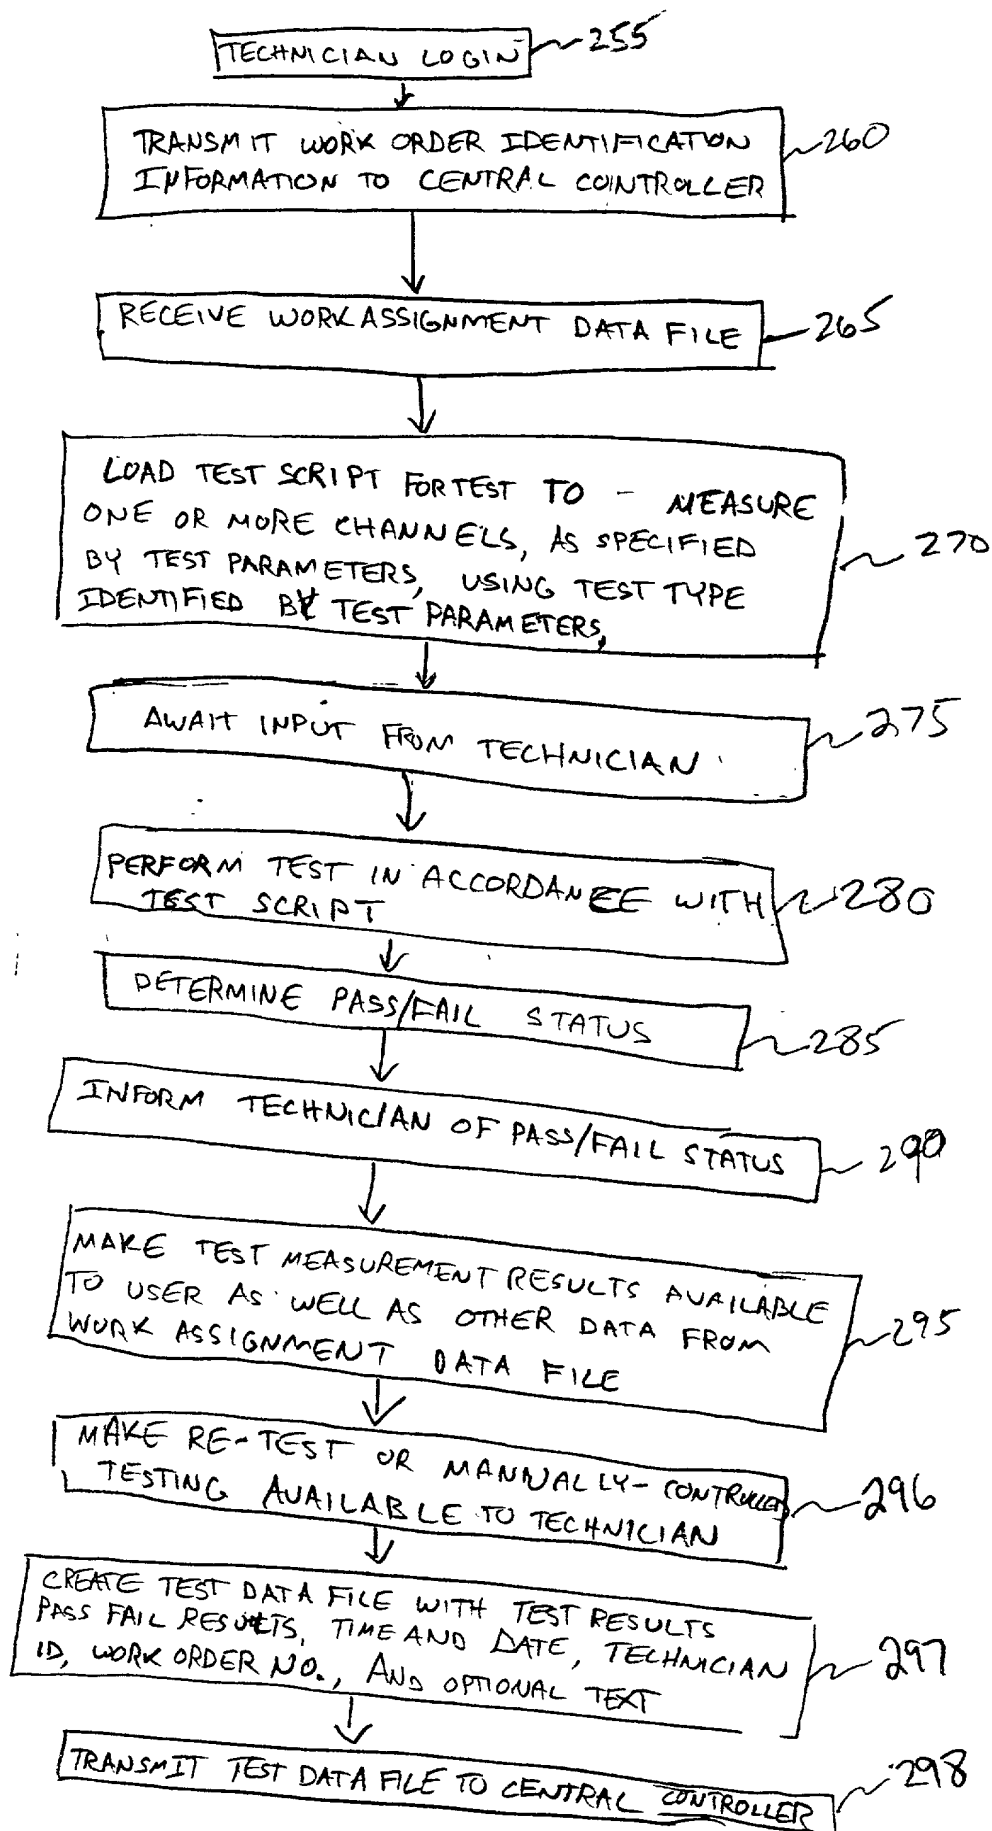 TECHNICIAN LOGIN 255
TRANSMIT WORK ORDER IDENTIFICATION 260
INFORMATION TO CENTRAL CONTROLLER
RECEIVE WORK ASSIGNMENT DATA FILE 265
LOAD TEST SCRIPT FOR TEST TO - MEASURE
ONE OR MORE CHANNELS, AS SPECIFIED
BY TEST PARAMETERS, USING TEST TYPE 270
IDENTIFIED BY TEST PARAMETERS,
AWAIT INPUT FROM TECHNICIAN 275
PERFORM TEST IN ACCORDANCE WITH 280
TEST SCRIPT
DETERMINE PASS/FAIL STATUS 285
INFORM TECHNICIAN OF PASS/FAIL STATUS 290
MAKE TEST MEASUREMENT RESULTS AVAILABLE
TO USER AS WELL AS OTHER DATA FROM 295
WORK ASSIGNMENT DATA FILE
MAKE RE-TEST OR MANUALLY-CONTROLLED 296
TESTING AVAILABLE TO TECHNICIAN
CREATE TEST DATA FILE WITH TEST RESULTS
PASS FAIL RESULTS, TIME AND DATE, TECHNICIAN 297
ID, WORK ORDER NO., AND OPTIONAL TEXT
TRANSMIT TEST DATA FILE TO CENTRAL CONTROLLER 298